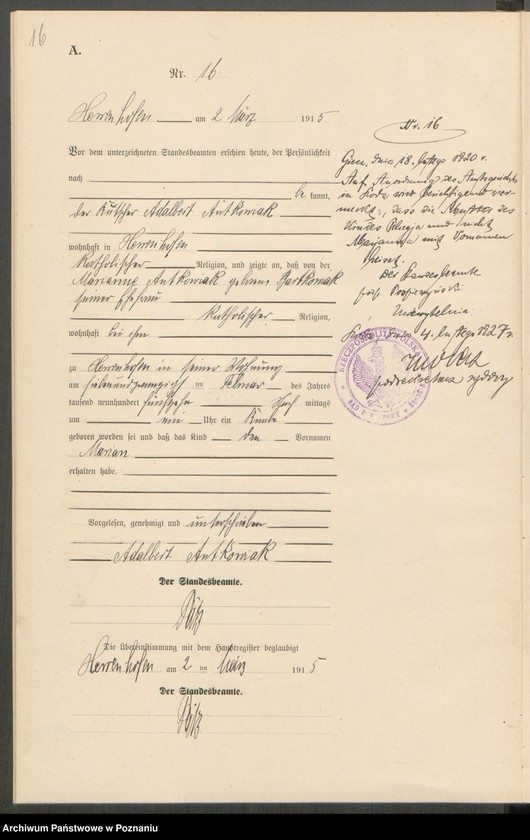 16
A.
Nr. 16
Herrenhofen am 2 März 1915
Vor dem unterzeichneten Standesbeamten erschien heute, der Persönlichkeit
nach
be kannt,
der Kutscher Adalbert Antkowiak
wohnhaft in Herrenhofen
katholischer Religion, und zeigte an, daß von der
Marianne Antkowiak geborene Bartkowiak
seiner Ehefrau
katholischer Religion,
wohnhaft bei ihm
zu Herrenhofen in seiner Wohnung
am siebenundzwanzigsten Februar des Jahres
tausend neunhundert fünfzehn Nach mittags
um ein Uhr ein Knabe
geboren worden sei und daß das Kind den Vornamen
Marian
erhalten habe.
Vorgelesen, genehmigt und unterschrieben
Adalbert Antkowiak
Der Standesbeamte.
Die Übereinstimmung mit dem Hauptregister beglaubigt
Herrenhofen am 2 ten März 1915
Der Standesbeamte.
Nr. 16
18. 1920 r.
Auf Anordnung des Amtsgerichts
in wird
vermerkt, dass die Mutter des
Kindes Pelagia und nicht
Maryanna mit Vornamen
heisst.
Der Standesbeamte
4. 1927 r.
Archiwum Państwowe w Poznaniu